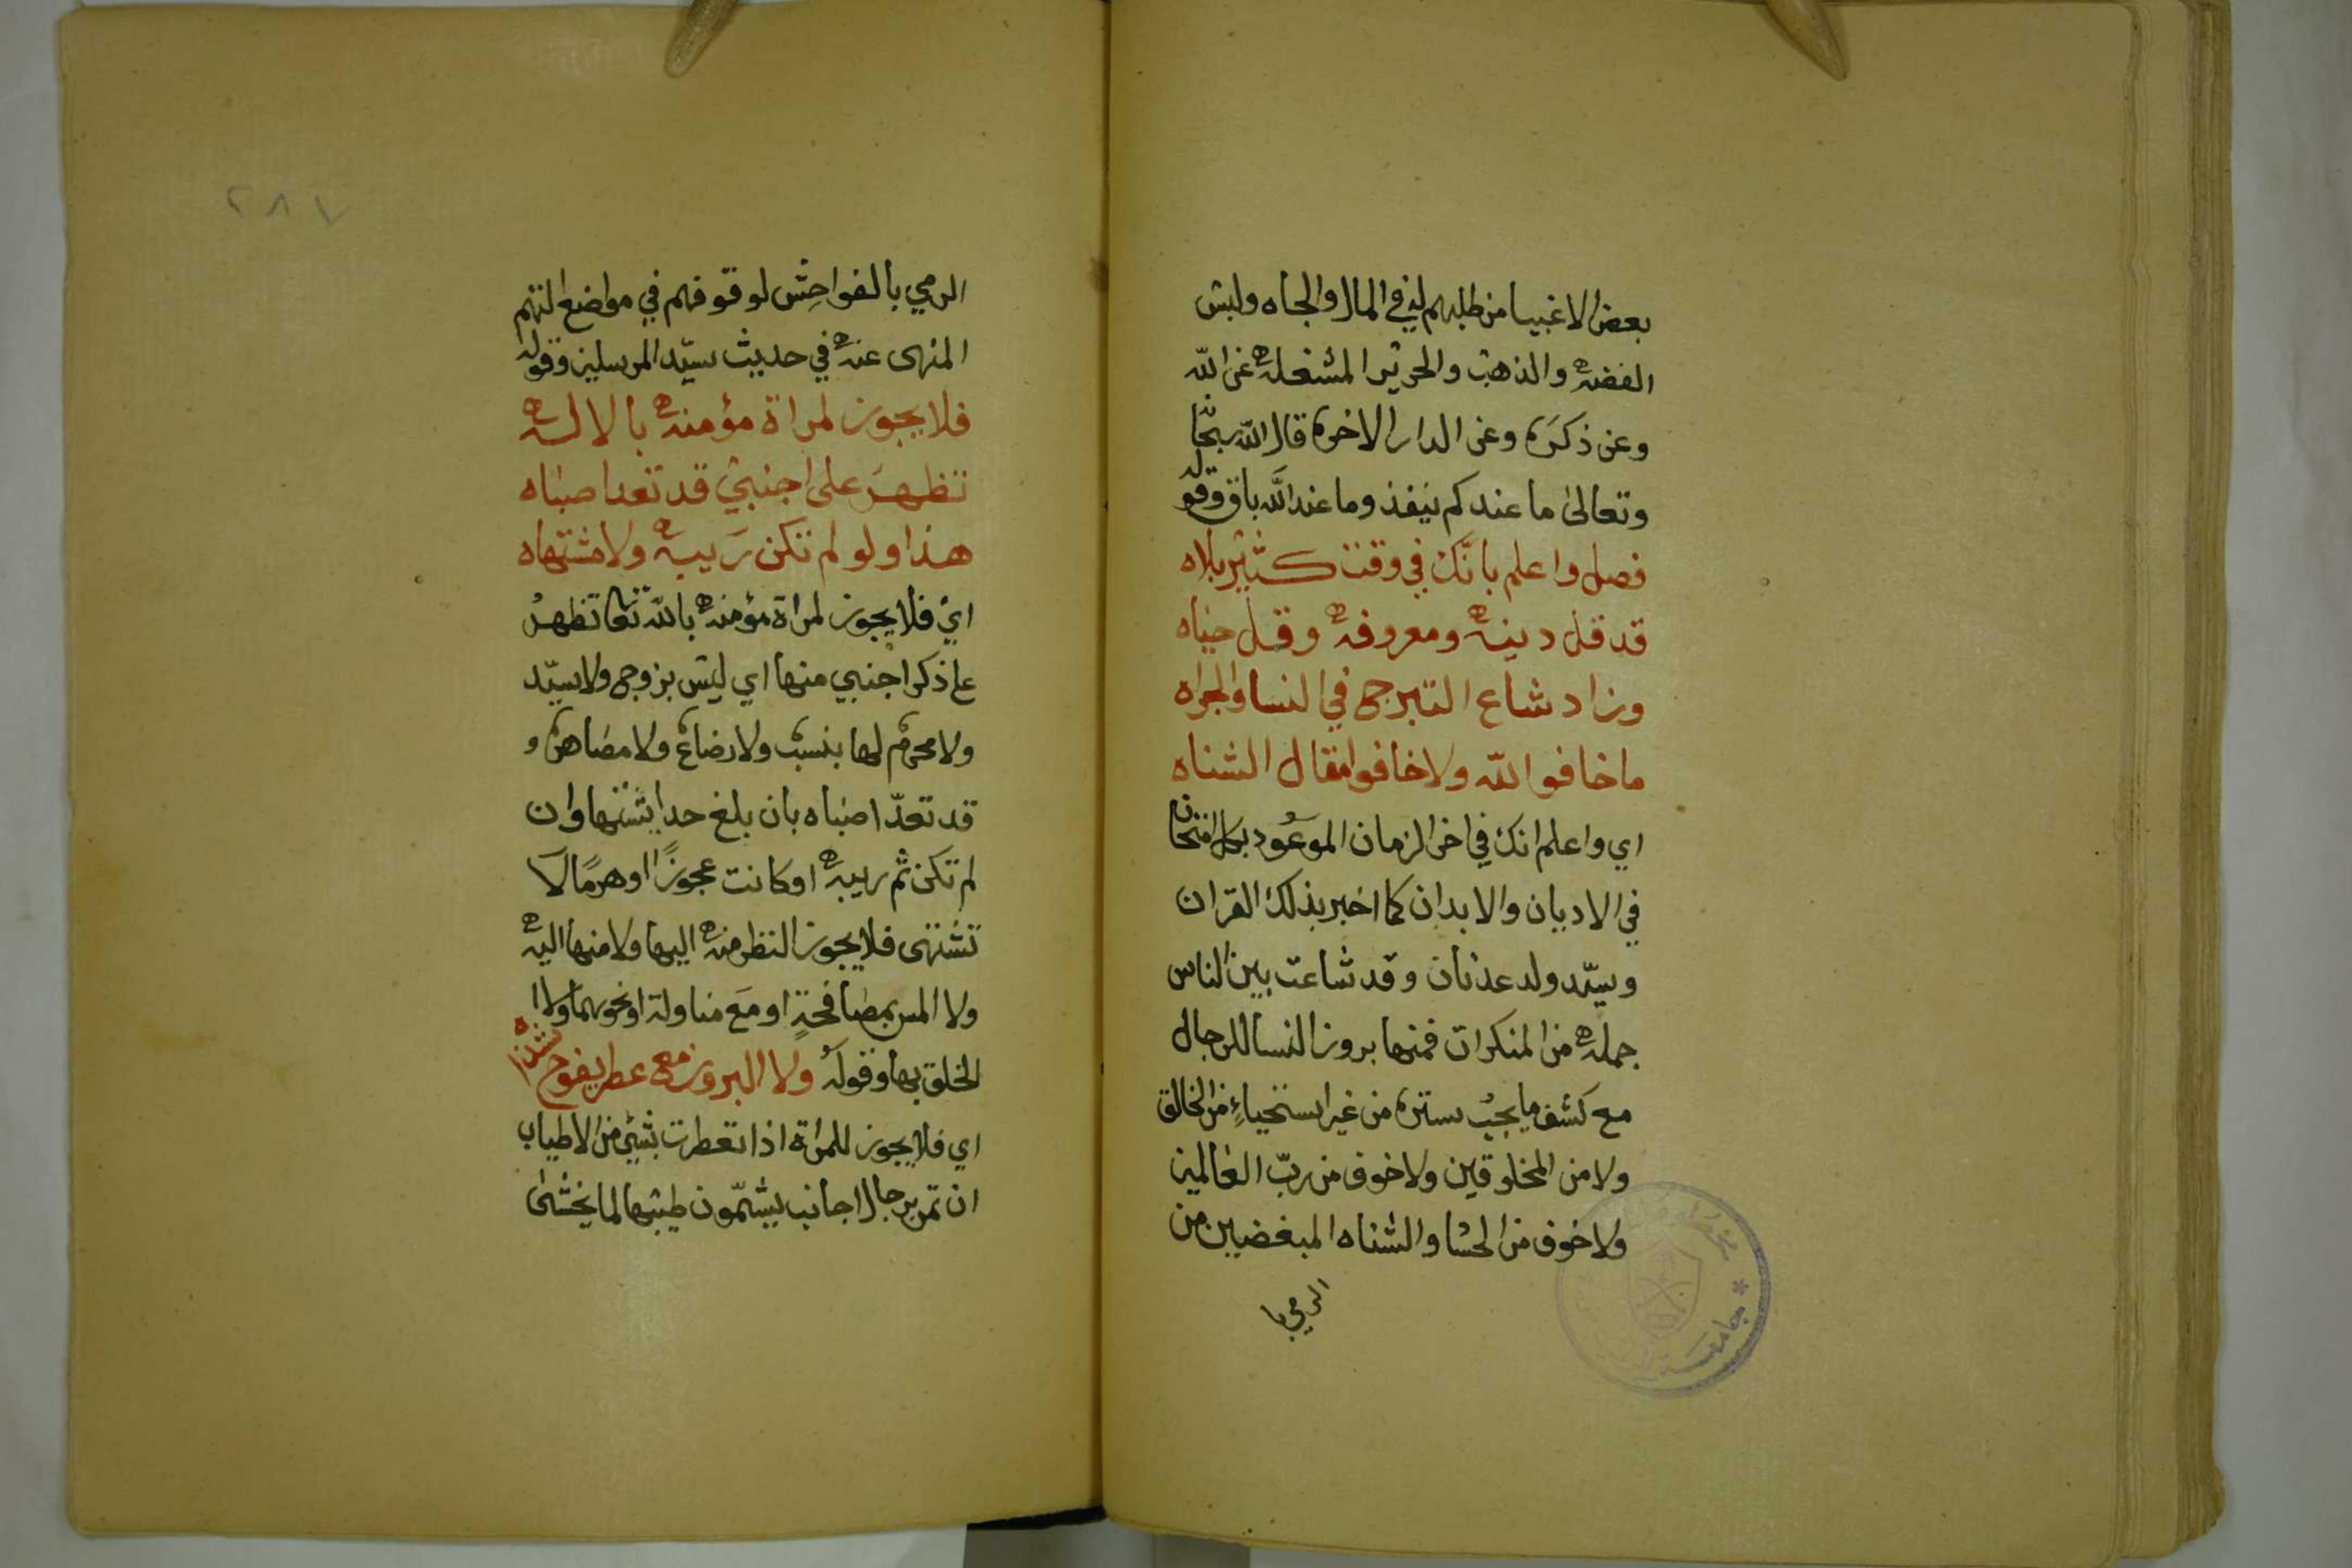 بعض الاغبيا من طلبهم ليني المال والجاه ولبس
الفضه والذهب والحرير المشغله عن الله
وعن ذكره وعن الدار الاخره قال الله سبحا
وتعالى ما عندكم ينفذ وما عند الله باق وقوله
فصل واعلم بانك في وقت كثير بلاه
قد قل دينه ومعروفه وقل حياه
وزاد شاع التبرج في النسا والجراه
ما خافوا الله ولا خافوا مقال الشناه
اي واعلم انك في اخر الزمان الموعود بكل امتحان
في الاديان والابدان كما اخبر بذلك القران
وسيد ولد عدنان وقد شاعت بين الناس
جمله من المنكرات فمنها بروز النسا للرجال
مع كشف ما يجب ستره من غير استحياء من الخالق
ولا من المخلوقين ولا خوف من رب العالمين
ولا خوف من الحسا والشناه المبغضيين من
الرمي با
جامعة
٢٨٧
الرمي بالفواحش لوقوفهم في مواضع التهم
المنهى عنه في حديث سيد المرسلين وقوله
فلا يجوز لمراة مؤمنه بالاله
تظهر على اجنبي قد تعدا صباه
هذا ولو لم تكن ريبه ولا مشتهاه
اي فلا يجوز لمراة مؤمنه بالله تعا تظهر
على ذكر اجنبي منها اي ليس بزوج ولا سيد
ولا محرم لها بنسب ولا رضاع ولا مصاهره و
قد تعدا صباه بان بلغ حدا يشتها وان
لم تكن ثم ريبه او كانت عجوزا او هرما لا
تشتهى فلا يجوز النظر منه اليها ولا منها اليه
ولا المس بمصافحة او مع مناولة او نحوهما ولا ا
لخلق بها وقوله ولا البروز مع عطر يفوح شذاه
اي فلا يجوز للمراة اذا تعطرت بشيئ من الاطياب
ان تمر برجال اجانب يشمون طيبها لما يخشى